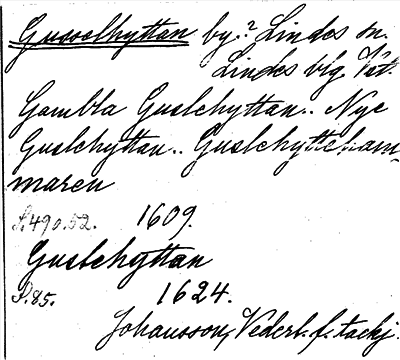 Gusselhyttan by.? Lindes sn.
Lindes blg. Väst.
Gambla Guslehyttan.. Nye
Guslehyttan.. Guslehytteham-
maren
S.490.52. 1609.
Guslehyttan
S.85. 1624.
Johansson, Vederl. f. tackj.